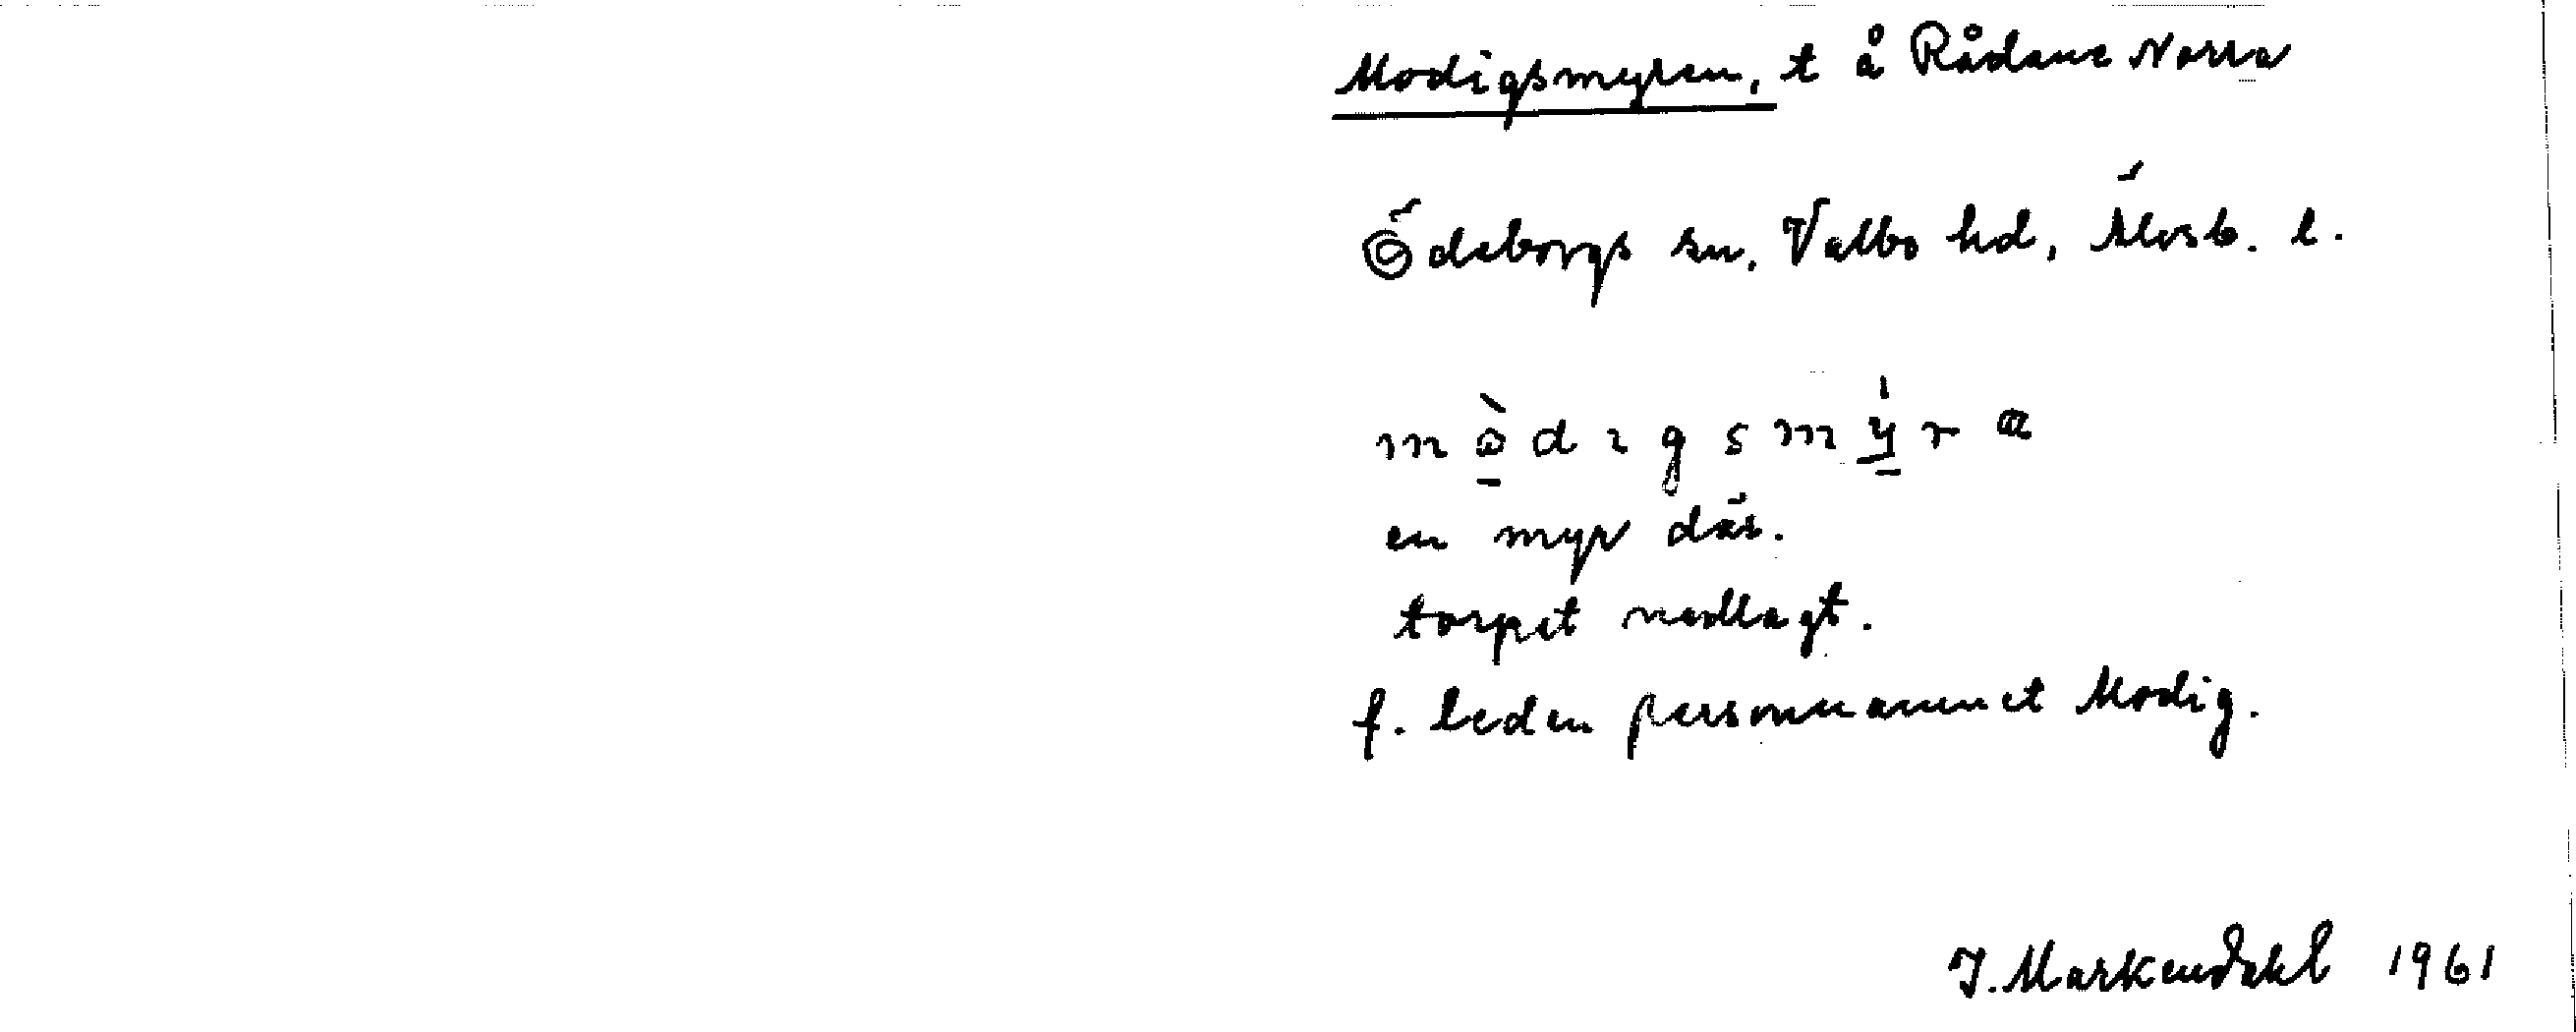 Modigsmyren, t å Rådane Norra
Ödeborgs sn, Valbo hd, Älvsb. l.
mò̱dıgsmý̱ra
en myr där.
torpet nedlagt.
f. leden personnamnet Modig.
J. Markendahl 1961